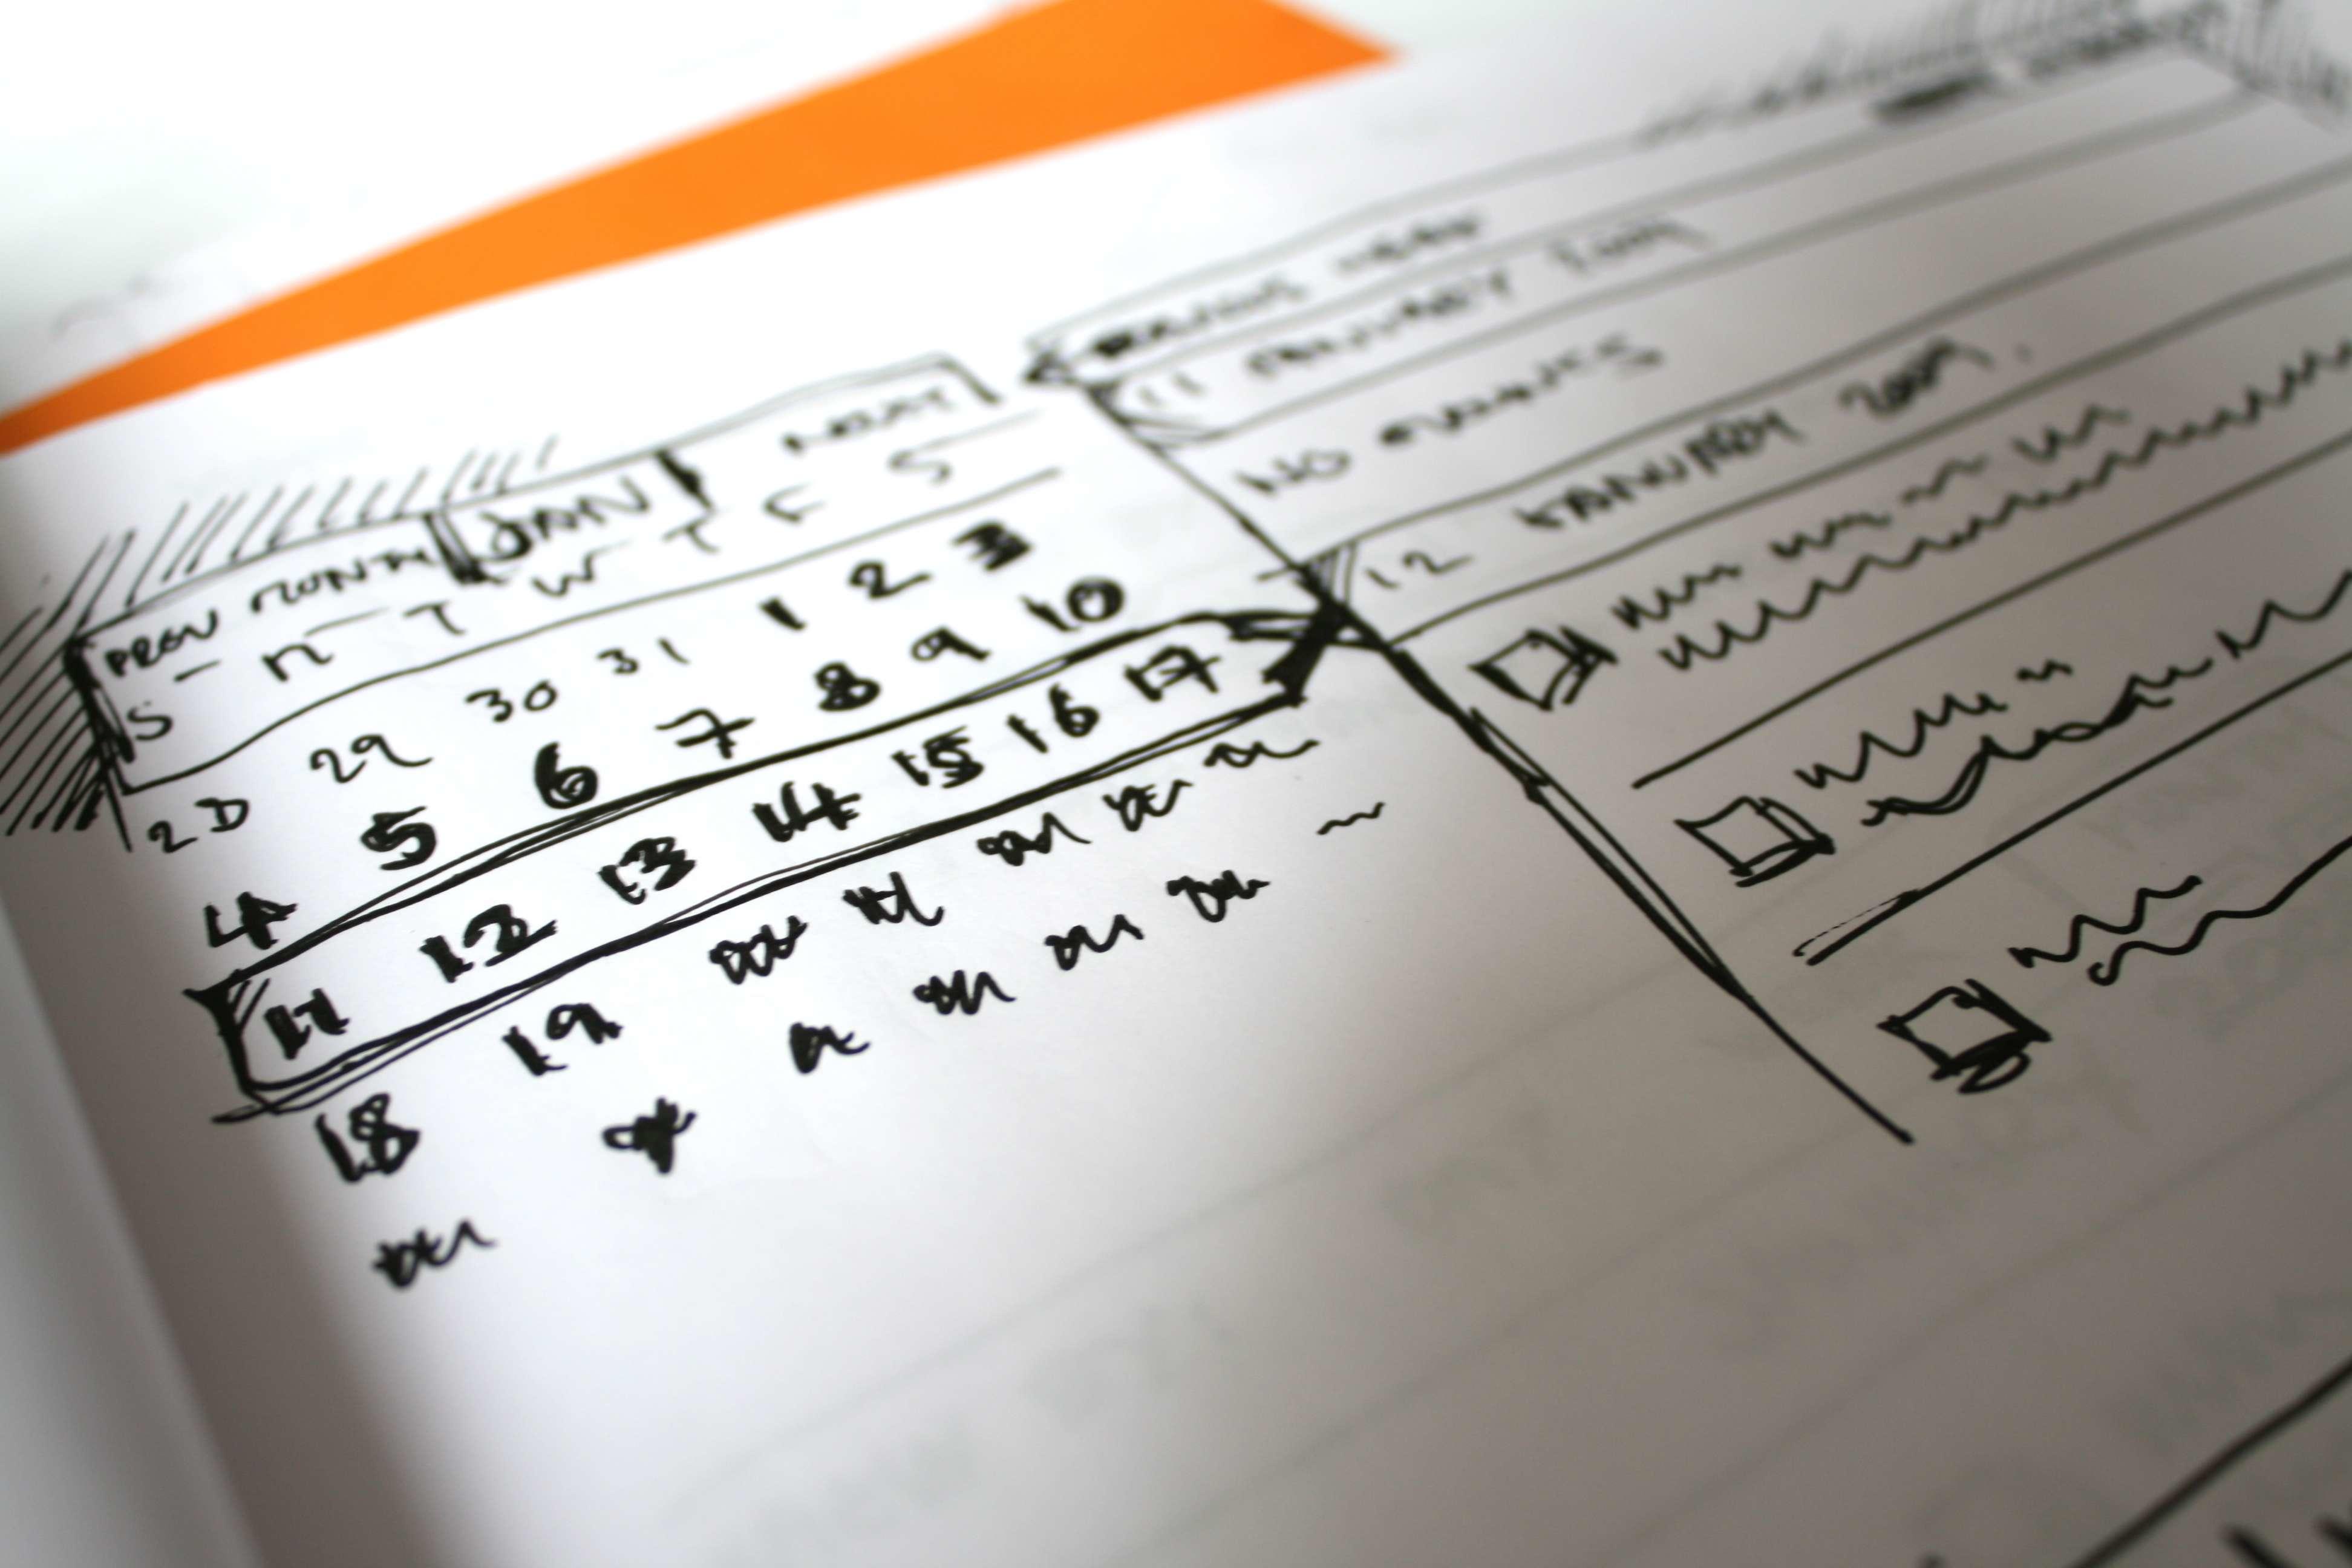 PREV MONTH JAN NEXT
S M T W T F S
28 29 30 31 1 2 3
4 5 6 7 8 9 10
11 12 13 14 15 16 17
18 19
PREVIOUS WEEK
11 JANUARY 2009
NO EVENTS
12 JANUARY 2009.